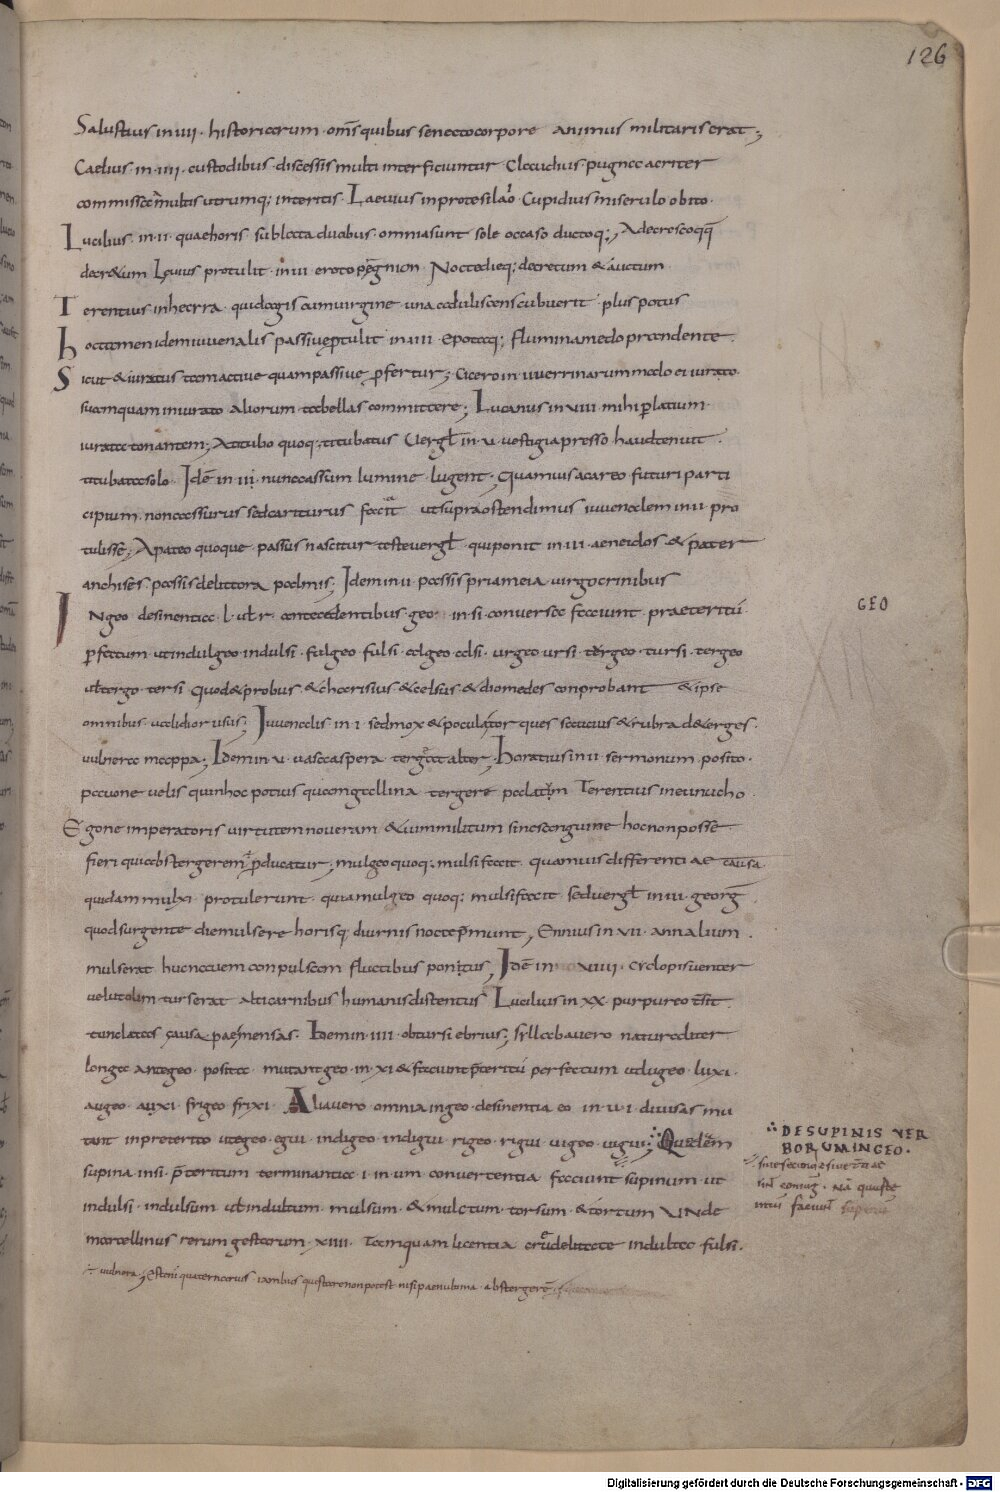 126
Salustius in iiii · historicorum · om̄s quibus senecto corpore animus militaris erat ;
Caelius · in · iiii · custodibus · discessis multi interficiuntur Claudius · pugna acriter
commissa multis utrumq; interitis · Laevius in protesilao Cupidius miserulo obito ·
Lucilius · in · ii · quae horis sublata duabus · omnia sunt sole occaso ductoq; , A decresco qq̄
decr&um Lęvius protulit · in · vi eroto pęgnion · Noctedieq; decretum & auctum
Terentius · in hecyra · quid agis cum virgine una adulescens cubuerit plus potus
hoc tamen idem iuvenalis passive ptulit in · iii epotaq; flumina medo prandente ·
Sicut & iuratus tam active quam passive pfertur ; Cicero in verrinarum modo ei iurato
suam quam iniurato aliorum tabellas committere ; Lucanus in · viii mihi platum
iurate tonantem ; A titubo quoq; titubatus Vergł in · v · vestigia presso haud tenuit ·
titubata solo · Idē in · iii · nunc cassum lumine lugent · Quamvis a careo futuri parti
cipium · non cassurus sed cariturus facit ut supra ostendimus iuvenalem in ii pro
tulisse ; A pateo quoque passus nascitur teste vergł qui ponit in · iii · aeneidos & pater
anchises · passis de littora palmis ; Idem in ii passis priameia virgo crinibus
INgeo desinentia · l · uł · r · antecedentibus · geo in · si · conversa faciunt praeteritū
pfectum ut indulgeo indulsi · fulgeo fulsi · algeo · alsi · urgeo ursi · turgeo · tursi · tergeo
uł tergo · tersi Quod & probus & charisius & celsus & diomedes conprobant & ipse
omnibus · validior usus ; Iuvenalis in · i · sed mox & poculator ques saucius & rubra d&erges ·
vulnera mappa ; Idem in · v · vasa aspera terg&at alter ; Horatius in ii sermonum · posito ·
pavone velis quin hoc potius quam gallina tergere palatum Terentius in eunucho ·
Egone imperatoris virtutem noveram · & vim militum sine sanguine hoc non posse
fieri qui abstergerem pducatur ; mulgeo quoq; mulsi facit · quamvis differentiae causa
quidam mulxi protulerunt · quia mulgeo quoq; mulsi facit sed vergł in iii · georḡ ·
quod surgente die mulsere horisq; diurnis nocte p̄munt , Ennius in vii · annalium ·
mulserat huc navem conpulsam fluctibus ponitus , Idē in xviiii · cyclopis venter
velut olim turserat alti carnibus humanis distentus Lucilius in xx · purpureo
tunc lates causa paemensas · Idem in · iiii · obtursi ebrius ; syllaba vero naturaliter
longa ante geo · posita · mutant geo · in · xi & faciunt p̄teritū perfectum ut lugeo · luxi ·
augeo · auxi · frigeo frixi · Alia vero omnia in geo · desinentia eo in · u · i · divisas mu
tant in preterito ut egeo · egui · indigeo indigui rigeo · rigui vigeo · vigui ; Quaedam
supina in si · p̄teritum terminantia · i · in · um · convertentia faciunt supinum ut
indulsi · indulsum uł indultum · mulsum · & mulctum · tursum · & tortum UNde
marcellinus rerum gestarum · xiiii · Tamquam licentia crudelitate indulta · fulsi ·
vulnera ; quaternarius · ianibus questare non potest nisi paenulima · abstergere
GEO
DE SUPINIS VER
BORUM IN GEO ·
sive secundę sive tertiae